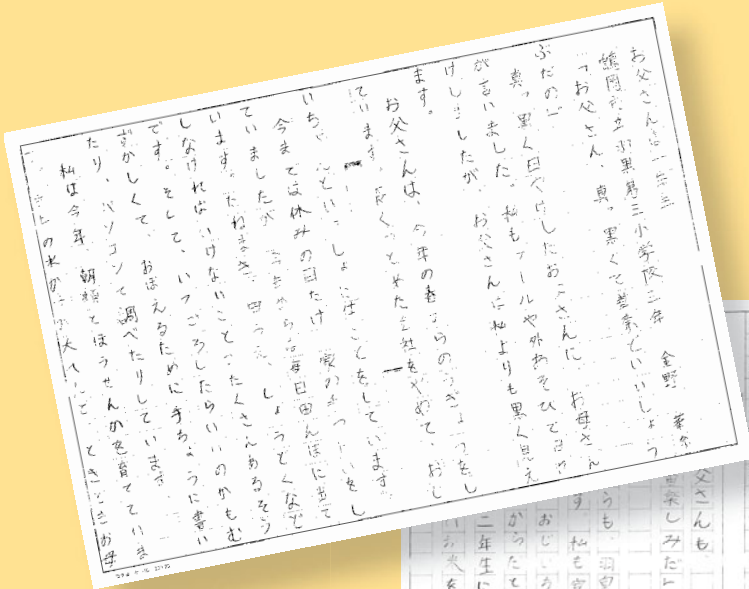 お父さんも一年生
鶴岡市立羽黒第三小学校 三年 金野
「お父さん、真っ黒くて
真っ黒く日やけしたお父さんに、お母さん
が言いました。私もプールや外あそびで日や
けしましたが、お父さんは私よりも黒く見え
ます。
お父さんは、今年の春からのうぎょうをし
ています。長くつとめた会社をやめて、おじ
いちゃんといっしょにしごとをしています。
今までは休みの日だけ、家の手つだいをし
ていましたが、今年からは毎日田んぼに出て
います。たねまき、田うえ、しょうどくなど
しなければいけないことがたくさんあるそう
です。そして、いつごろしたらいいのかもむ
ずかしくて、おぼえるために手ちょうに書い
たり、パソコンで調べたりしています。
私は今年、朝顔とほうせんかを育てていま
ときどきお母
父さんも、
楽しみだと
らも、羽
す。私も
おじいち
からたて
二年生に
お米を